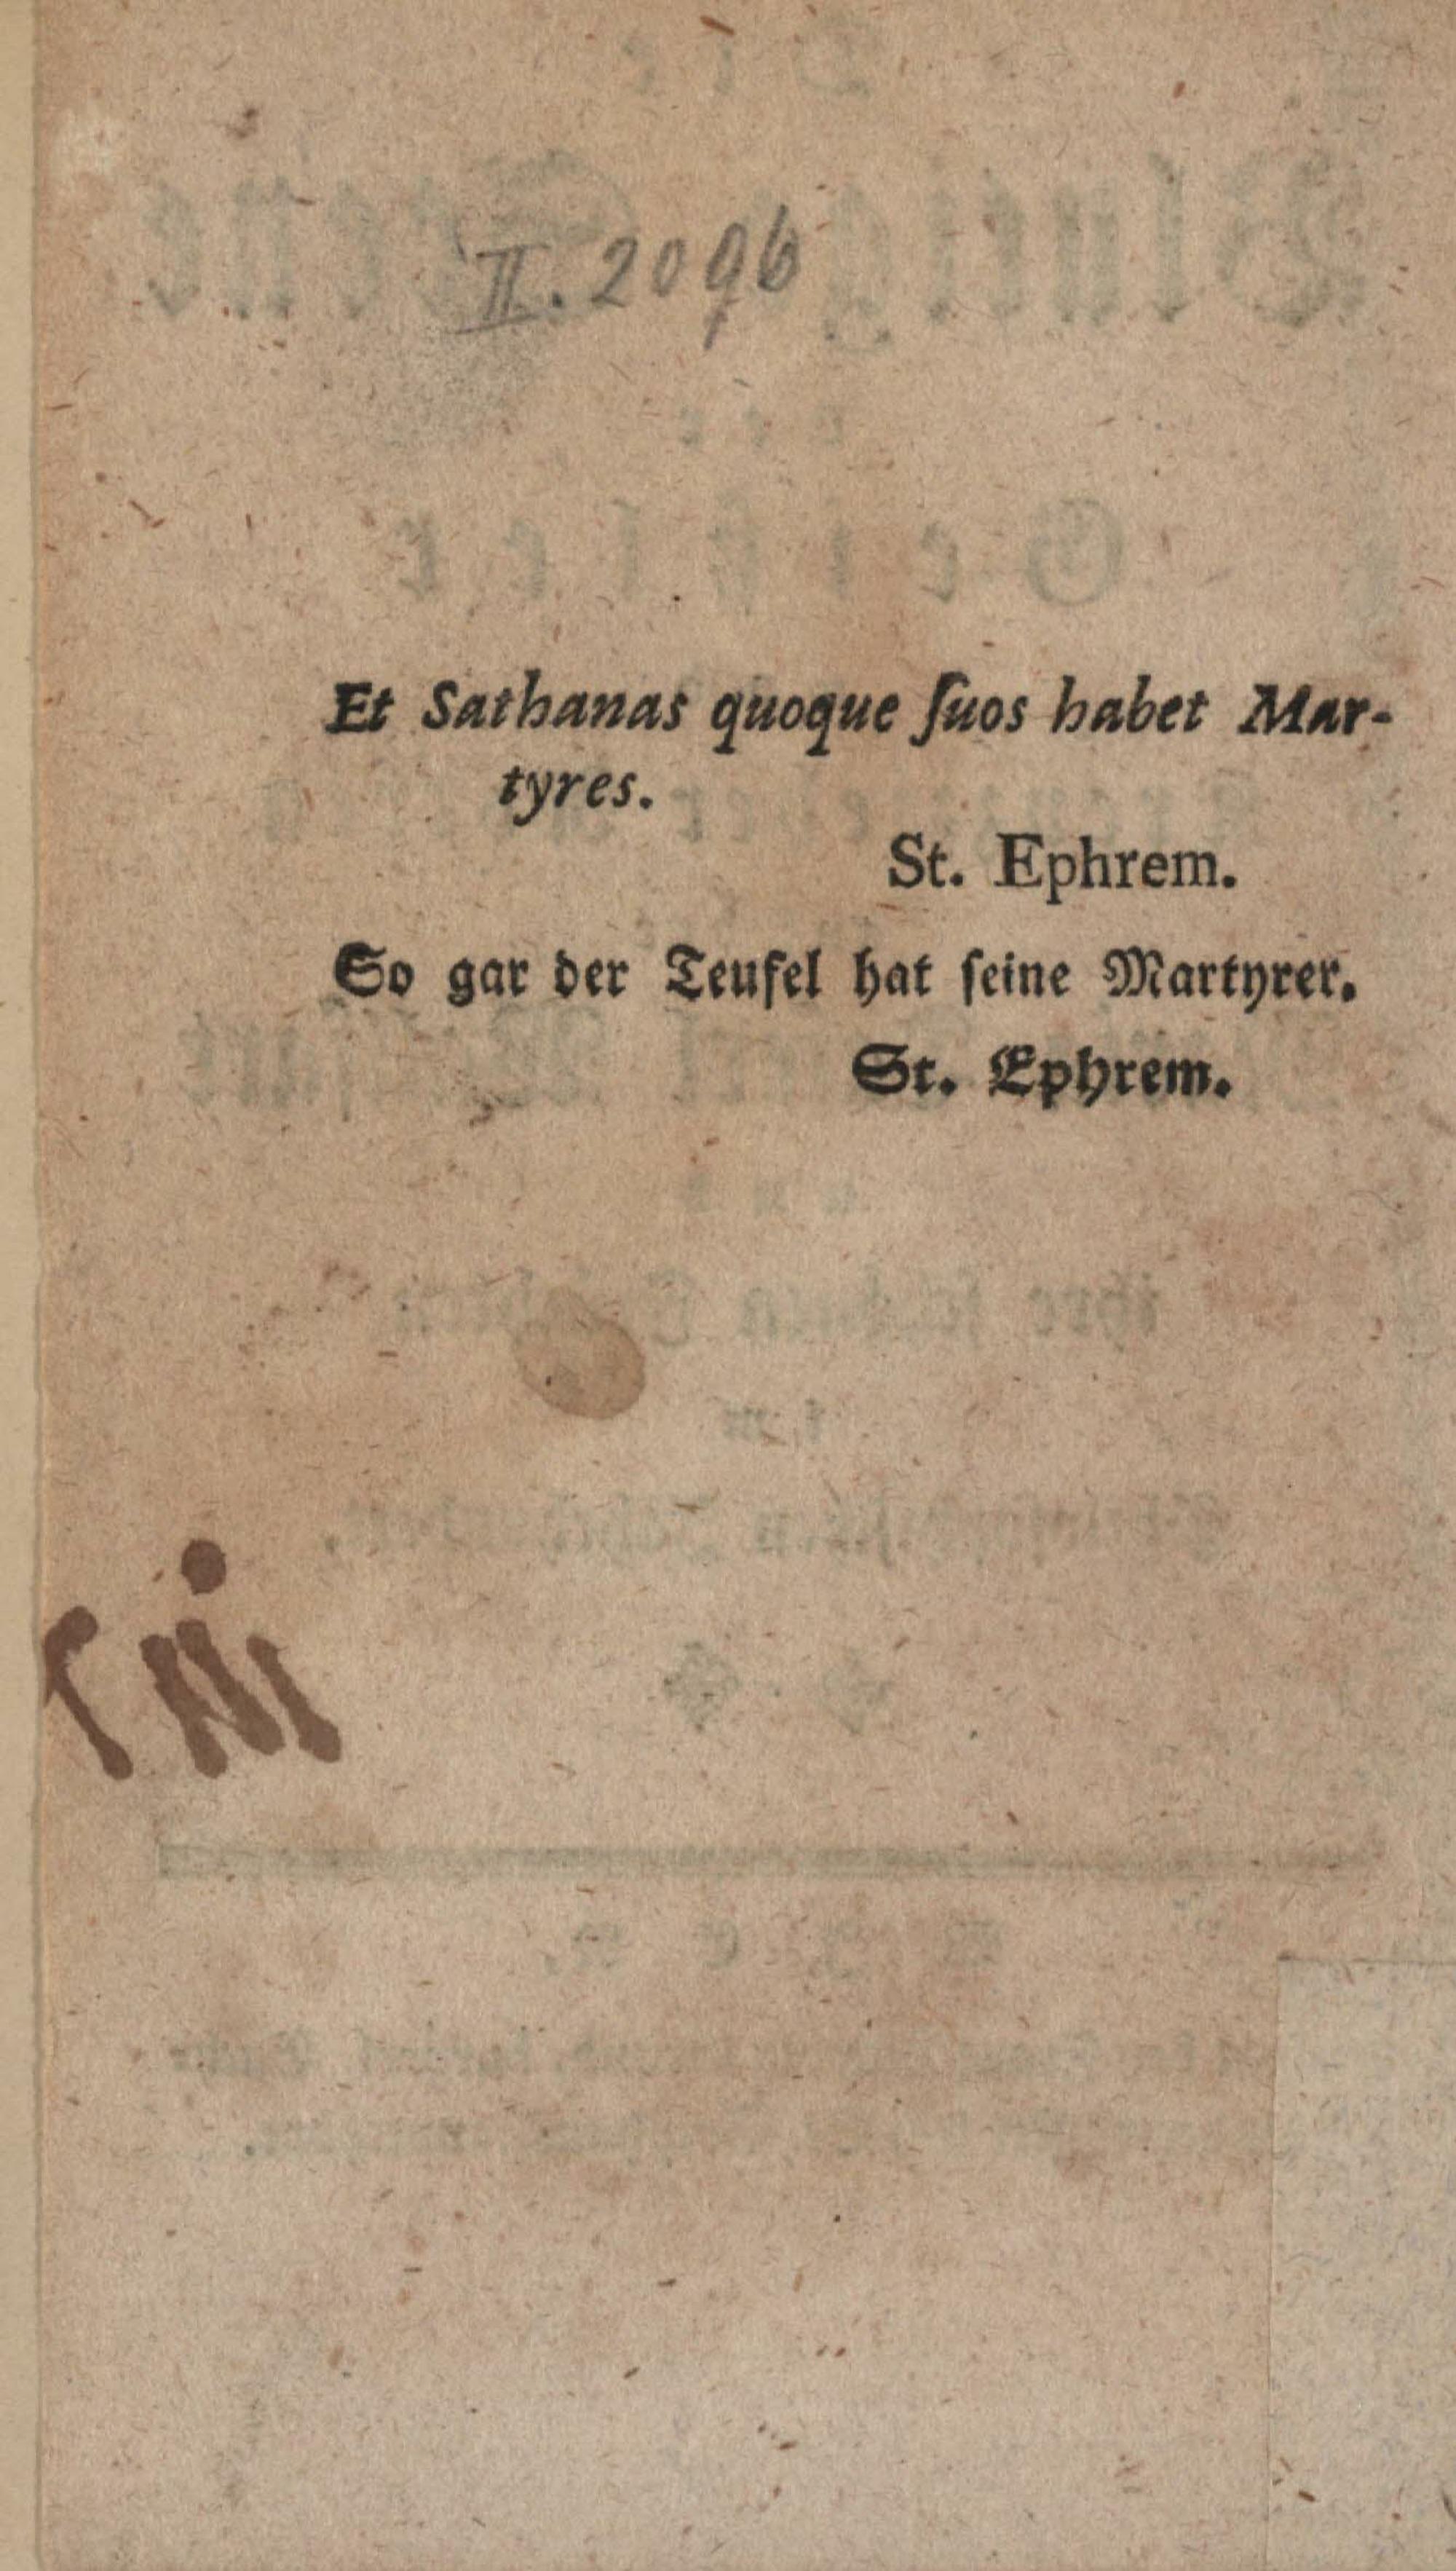 II. 2096
Et Sathanas quoque ſuos habet Mar-
tyres.
St. Ephrem.
So gar der Teufel hat ſeine Martyrer.
St. Ephrem.